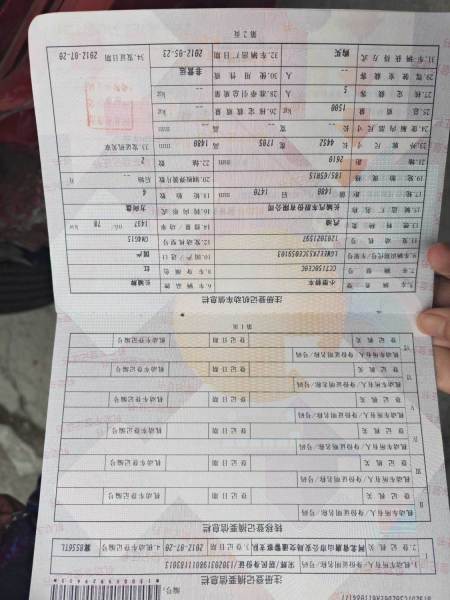 编号:
注册登记摘要信息栏
1.机动车所有人/身份证明名称/号码
2.登记机关 河北省唐山市公安局交通警察支队 3.登记日期 2012-07-20 4.机动车登记编号
转移登记摘要信息栏
Ⅱ 机动车所有人/身份证明名称/号码
登记机关 登记日期 机动车登记编号
Ⅲ 机动车所有人/身份证明名称/号码
登记机关 登记日期 机动车登记编号
Ⅳ 机动车所有人/身份证明名称/号码
登记机关 登记日期 机动车登记编号
Ⅴ 机动车所有人/身份证明名称/号码
登记机关 登记日期 机动车登记编号
Ⅵ 机动车所有人/身份证明名称/号码
登记机关 登记日期 机动车登记编号
Ⅶ 机动车所有人/身份证明名称/号码
登记机关 登记日期 机动车登记编号
第1页
注册登记机动车信息栏
5.车辆类型 小型轿车 6.车辆品牌 长城牌
7.车辆型号 8.车身颜色 红
9.车辆识别代号/车架号 10.国产/进口 国产
11.发动机号 12.发动机型号
13.燃料种类 汽油 14.排量/功率 1497 ml/ 78 kw
15.制造厂名称 长城汽车股份有限公司 16.转向形式 方向盘
17.轮距 前 1480 后 1470 mm 18.轮胎数 4
19.轮胎规格 185/65R15 20.钢板弹簧片数 后轴 -- 片
21.轴距 2610 mm 22.轴数 2
23.外廓尺寸 长 4452 宽 1705 高 1480 mm 33.发证机关章
24.货厢内部尺寸 长 -- 宽 -- 高 -- mm
25.总质量 1500 kg 26.核定载质量 -- kg
27.核定载客 5 人 28.准牵引总质量 -- kg
29.驾驶室载客 -- 人 30.使用性质 非营运
31.车辆获得方式 购买 32.车辆出厂日期 2012-05-23 34.发证日期 2012-07-20
第2页